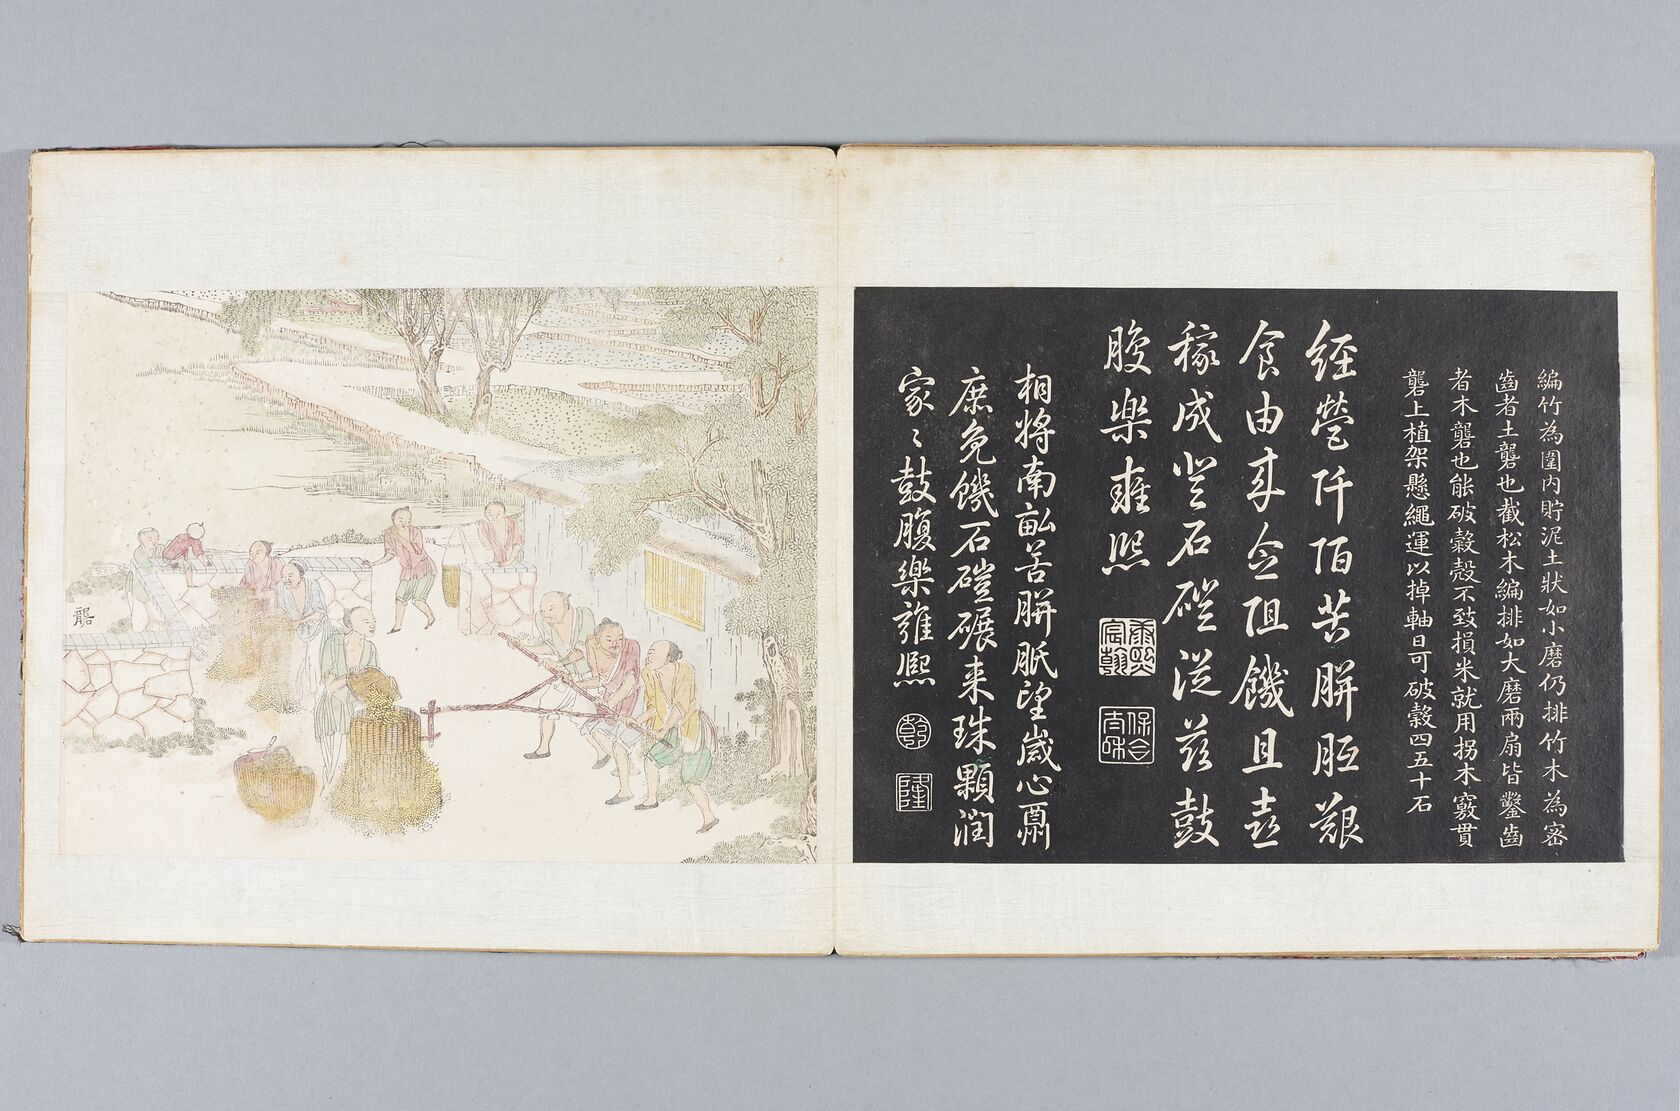 編竹為圍内貯泥土狀如小磨仍排竹木為密
齒者土礱也截松木編排如大磨兩扇皆鑿齒
者木礱也能破穀殼不致損米就用拐木竅貫
礱上植架懸繩運以掉軸日可破穀四五十石
經營阡陌苦胼胝艱
食由来念阻饑且喜
稼成登石磑從茲鼓
腹樂雍熙
康熙宸翰
保合太和
相将南畝苦胼胝望歲心酬
庶免饑石磑碾来珠顆潤
家〻鼓腹樂雍熙
乾
隆
礱